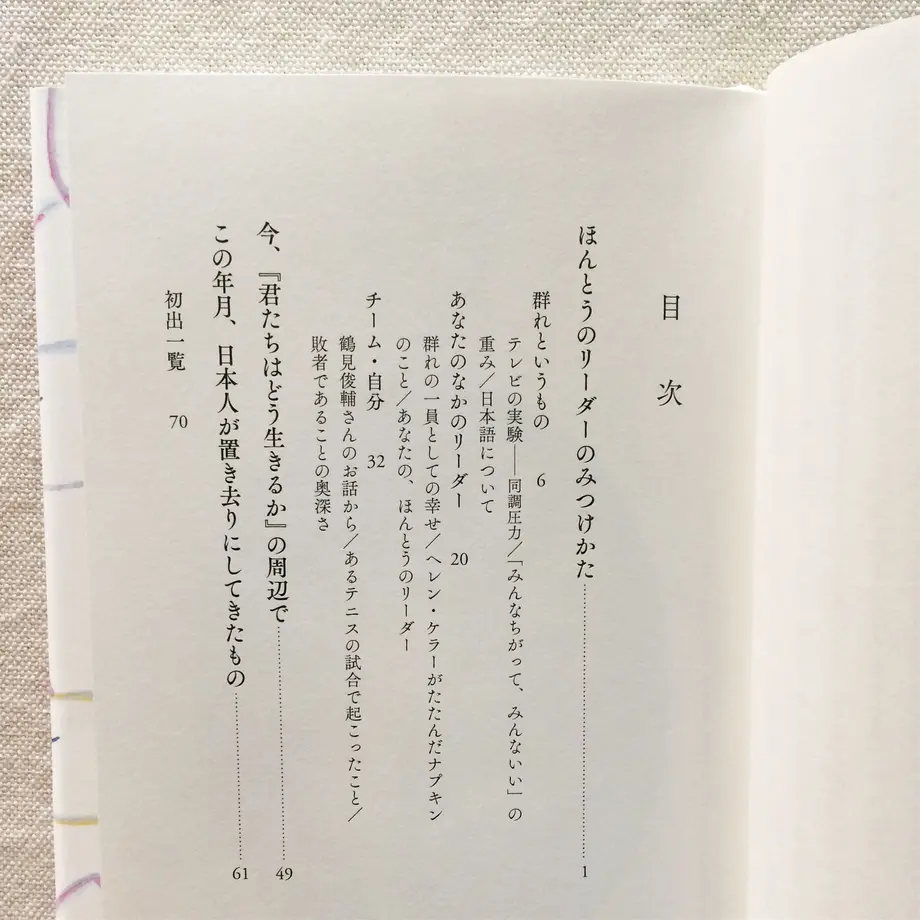 目次
ほんとうのリーダーのみつけかた……1
群れというもの 6
テレビの実験――同調圧力/「みんなちがって、みんないい」の
重み/日本語について
あなたのなかのリーダー 20
群れの一員としての幸せ/ヘレン・ケラーがたたんだナプキン
のこと/あなたの、ほんとうのリーダー
チーム・自分 32
鶴見俊輔さんのお話から/あるテニスの試合で起こったこと/
敗者であることの奥深さ
今、『君たちはどう生きるか』の周辺で……49
この年月、日本人が置き去りにしてきたもの……61
初出一覧 70